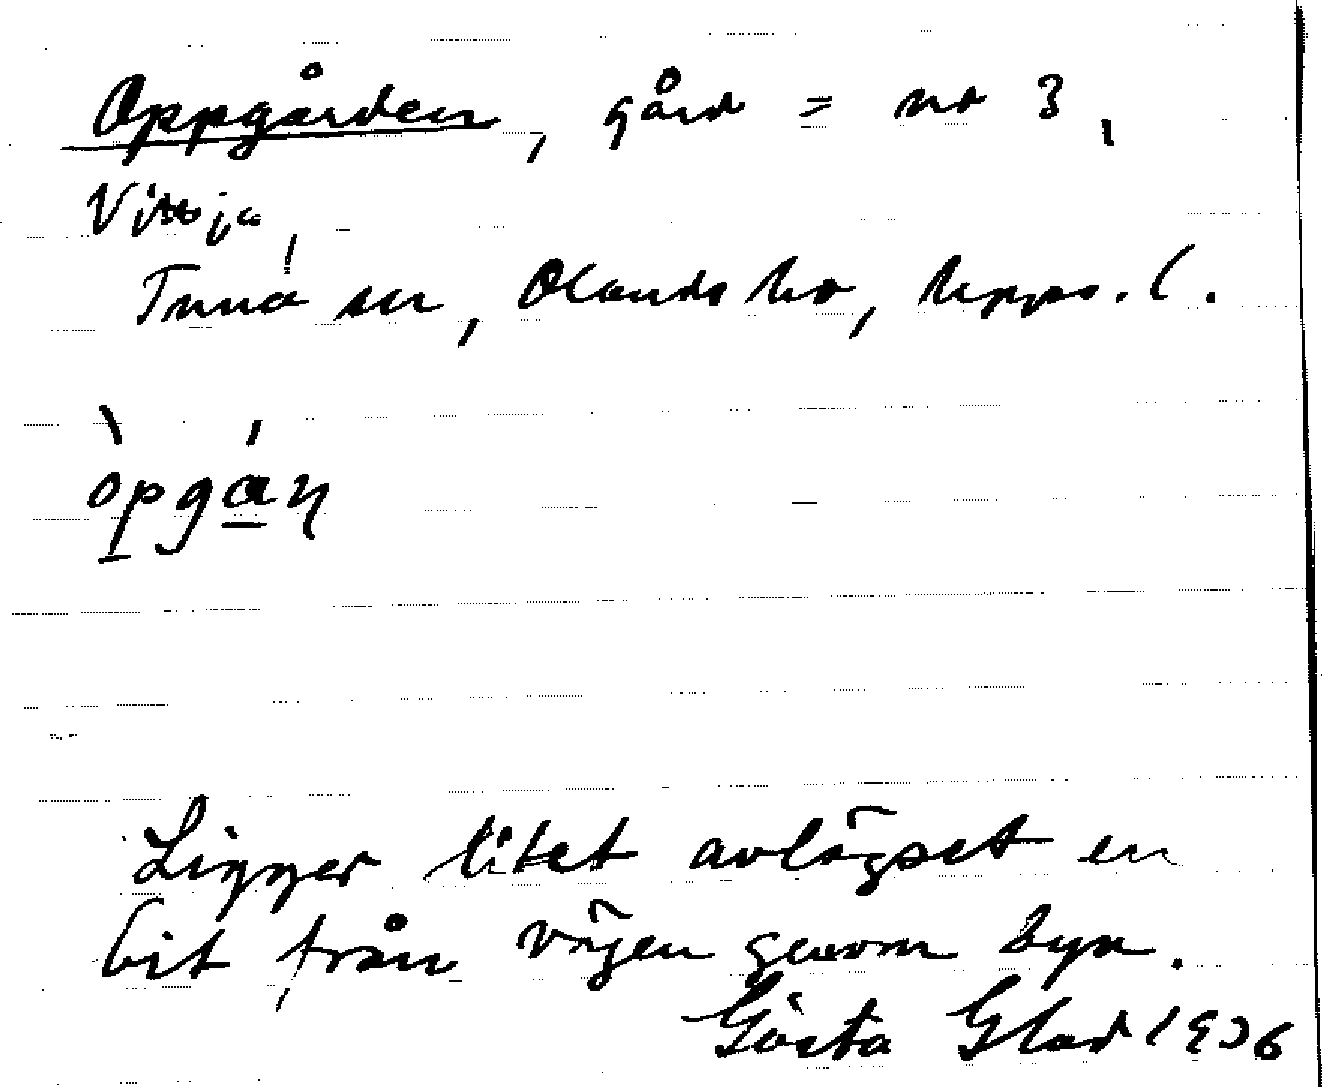 Oppgården, gård = nr 3,
Vittsja,
Tuna sn, Olands hd, Upps. l.
òpgáɳ
Ligger litet avlägset en
bit från vägen genom byn.
Gösta Glad 1936